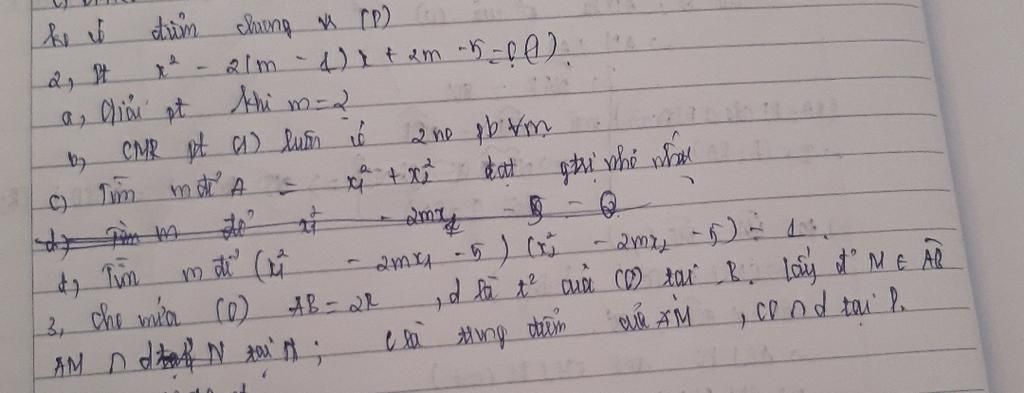 điểm chung vs (P)
2, Pt x² - 2(m - 1)x + 2m - 5 = 0 (1).
a, Giải pt khi m = 2
b, CMR pt (1) luôn có 2 no pb ∀m
c) Tìm m để A = x₁² + x₂² đạt gtrị nhỏ nhất
d) Tìm m để x₁² - 2mx₁ - 5 = 0
d, Tìm m để (x₁² - 2mx₁ - 5) (x₂² - 2mx₂ - 5) = 1.
3, Cho nửa (O) AB = 2R, d là t² của (O) tại B. Lấy đ' M ∈ AB
AM ∩ d N tại N; C là trung điểm của AM, CO ∩ d tại P.